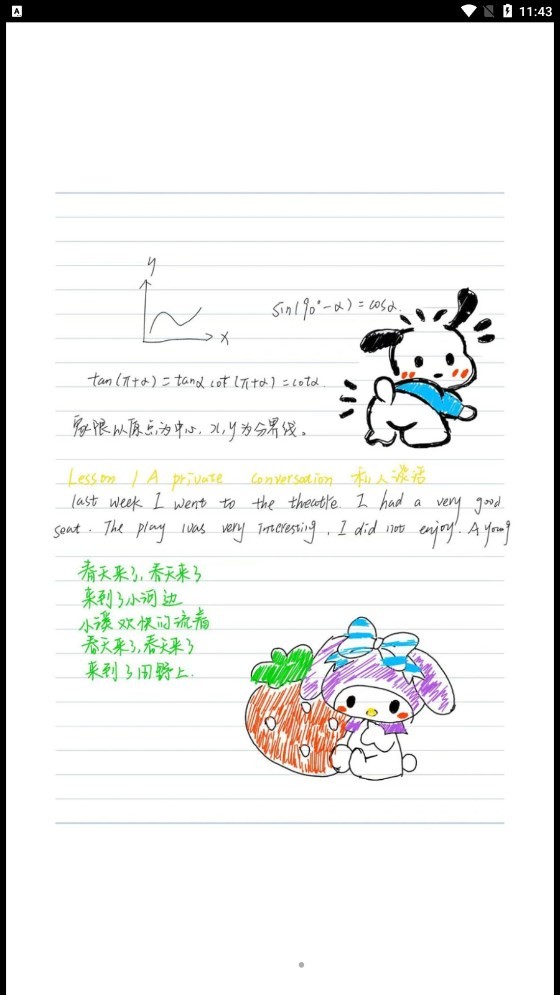 11:43
y
x
sin(90°-α)=cosα.
tan(π+α)=tanα cot(π+α)=cotα.
象限以原点为中心, x, y为分界线。
Lesson 1 A private conversation 私人谈话
last week I went to the theatre. I had a very good
seat. The play was very interesting. I did not enjoy. A young
春天来了,春天来了
来到了小河边
小溪欢快的流着
春天来了,春天来了
来到了田野上.